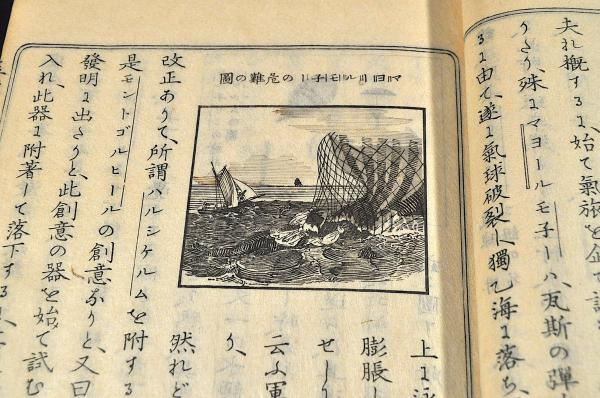 夫れ概するに、始て氣旅を企て
たり殊にマヨールモ子ーハ、瓦斯の彈
るに由て、遂に氣球破裂し獨乙海に落ち、
マヨールモ子ーの危難の圖
上に泳
膨脹し
せし
云ふ軍
り、
然れど
改正ありて、所謂ハルシケルムを附する
是モントゴルヒールの創意なりと、又曰
發明に出たりと、此創意の器を始て試む
入れ、此器に附著して落下する